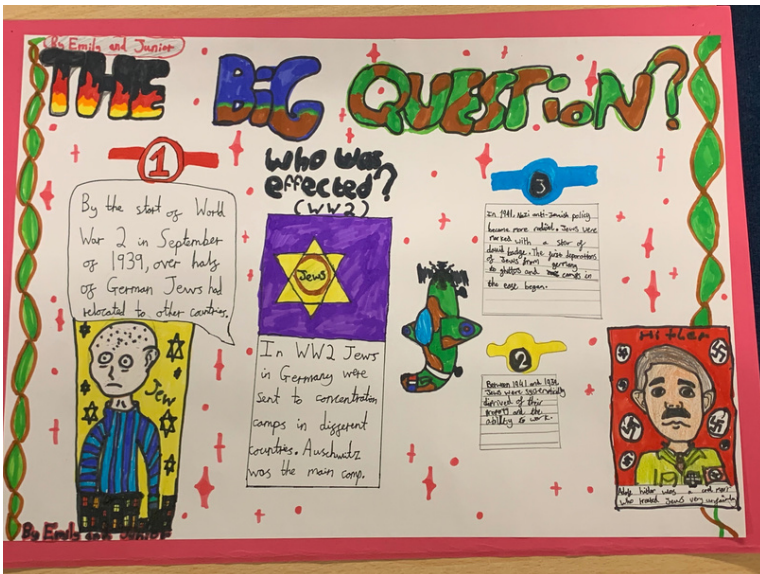 By Emily and Junior
THE BiG QUESTioN?
1
By the start of World
War 2 in September
of 1939, over half
of German Jews had
relocated to other countries.
Jew
By Emily and Junior
who was
effected?
(WW2)
Jews
In WW2 Jews
in Germany were
sent to concentration
camps in different
countries. Auschwitz
was the main camp.
3
In 1941, Nazi anti-Jewish policy
became more radical. Jews were
marked with a star of
david badge. The first
of Jews from germany
to ghettos and camps in
the east began.
2
Between 1941 and
Jews were systematically
deprived of their
property and the
ability to work.
Hitler
hitler was a man
who treated Jews very unfairly